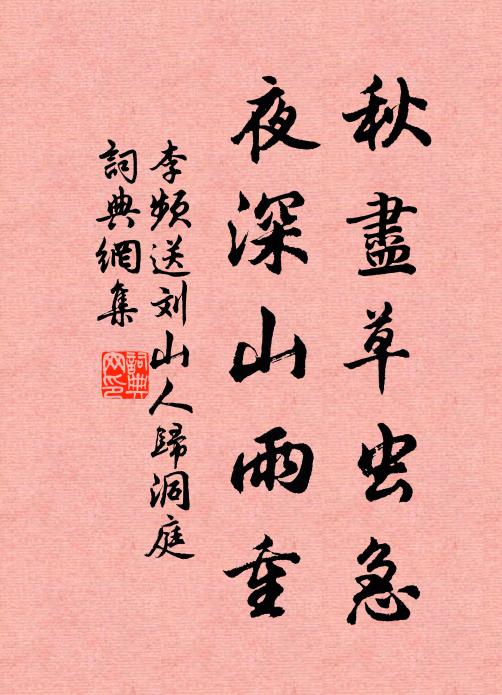 秋盡草虫急
夜深山雨重
李频送刘山人歸洞庭
詞典網集
詞典
网印